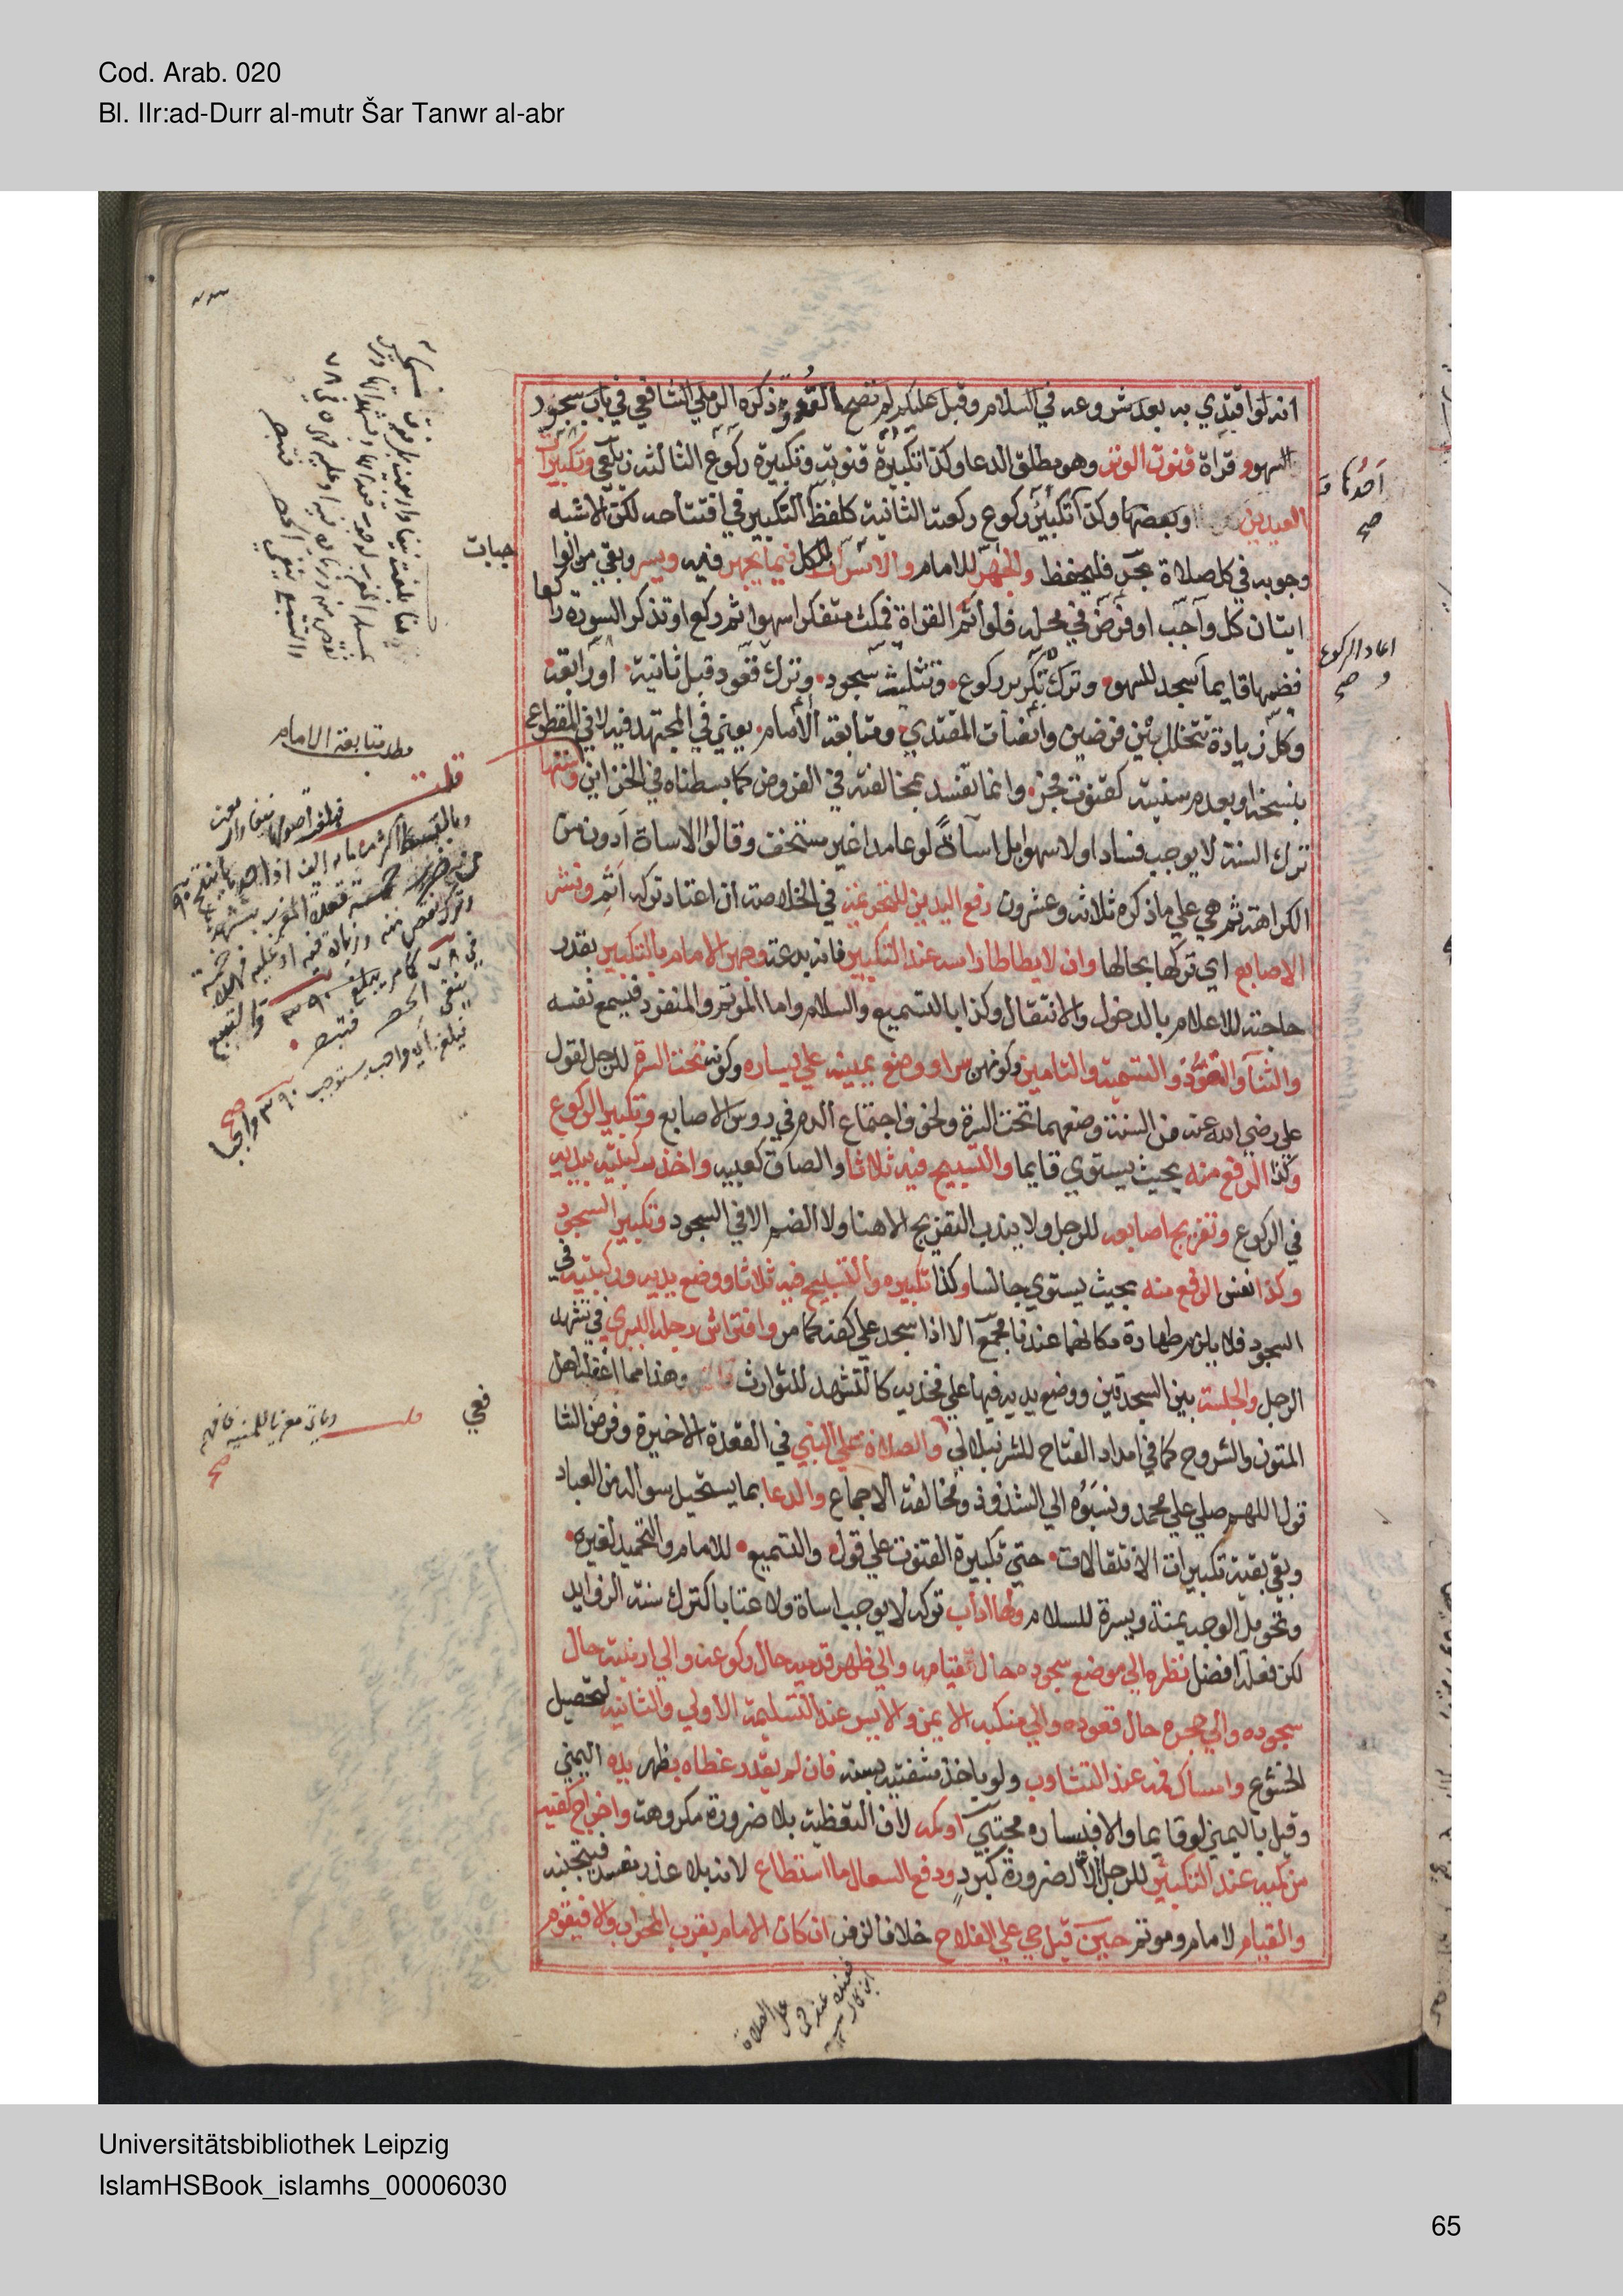 Cod. Arab. 020
Bl. IIr:ad-Durr al-mutr Šar Tanwr al-abr
انه لو اقتدي به بعد شروعه في السلام وقبل عليكم لم تصح القدوة ذكره الرملي الشافعي في باب سجود
السهو و قراة قنوت الوتر وهو مطلق الدعا وكذا تكبيرة قنوته وتكبيرة ركوع الثالثة زيلعي وتكبيرات
العيدين وبعضها وكذا تكبير ركوع ركعته الثانية كلفظ التكبير في افتتاحه لكن الاشبه
وجوبه في كل صلاة بحر فليحفظ والجهر للامام والاسرار للكل فيما يجهر فيه ويسر وبقي من الوا
جبات
اتيان كل واجب او فرض في محله فلو اتم القراة فمكث متفكرا سهوا ثم ركع او تذكر السورة راكعا
فضمها قايما سجد للسهو وترك تكرير ركوع وتثليث سجود وترك قعود قبل ثانية او رابعة
وكل زيادة تتخلل بين فرضين وانصات المقتدي ومتابعة الامام يعني في المجتهد فيه لا في المقطوع
بنسخه او بعدم سنيته كقنوت فجر وانما تفسد بمخالفته في الفروض كما بسطناه في الخزاين وسننها
ترك السنة لا يوجب فسادا ولا سهوا بل اساة لو عامدا غير مستخف وقالوا الاساة ادون من
الكراهة ثم هي علي ما ذكره ثلاثة وعشرون رفع اليدين للتحريمة في الخلاصة ان اعتاد تركه اثم ونشر
الاصابع اي تركها بحالها وان لا يطاطا راسه عند التكبير فانه بدعة وجهر الامام بالتكبير بقدر
حاجته للاعلام بالدخول والانتقال وكذا بالتسميع والسلام واما الموتم والمنفرد فيسمع نفسه
والثنا والتعوذ والتسمية والتامين وكونهن سرا ووضع يمينه علي يساره وكونه تحت السرة للرجل لقول
علي رضي الله عنه من السنة وضعهما تحت السرة ولخوف اجتماع الدم في روس الاصابع وتكبير الركوع
وكذا الرفع منه بحيث يستوي قايما والتسبيح فيه ثلاثا والصاق كعبيه واخذ ركبتيه بيديه
في الركوع وتفريج اصابعه للرجل ولا يندب التفريج الا هنا ولا الضم الا في السجود وتكبير السجود
وكذا نفس الرفع منه بحيث يستوي جالسا وكذا تكبيره والتسبيح فيه ثلاثا ووضع يديه وركبتيه في
السجود فلا يلزم طهارة مكانهما عندنا مجمع الا اذا سجد علي كفه كما مر وافتراش رجله اليسري في تشهد
الرجل والجلسة بين السجدتين ووضع يديه فيها علي فخذيه كالتشهد للتوارث وهذا مما اغفله اهل
المتون والشروح كما في امداد الفتاح للشرنبلالي والصلاة علي النبي في القعدة الاخيرة وفرض الشا
فعي
قول اللهم صلي علي محمد ونسبوه الي الشذوذ ومخالفة الاجماع والدعا بما يستحيل سواله من العباد
وبقي بقية تكبيرات الانتقالات حتي تكبيرة القنوت علي قول والتسميع للامام والتحميد لغيره
وتحويل الوجه يمنة ويسرة للسلام ولها اداب تركه لا يوجب اساة ولا عتابا كترك سنة الزوايد
لكن فعله افضل نظره الي موضع سجوده حال قيامه والي ظهر قدميه حال ركوعه والي ارنبته حال
سجوده والي حجره حال قعوده والي منكبه الايمن والايسر عند التسليمة الاولي والثانية لتحصيل
الخشوع وامساك فمه عند التثاوب ولو باخذ شفتيه بسنه فان لم يقدر غطاه بظهر يده اليمني
وقيل باليمني لو قايما والا فيساره مجتبي او كمه لان التغطية بلا ضرورة مكروهة واخراج كفيه
من كميه عند التكبير للرجل الا لضرورة كبرد ودفع السعال ما استطاع لانه بلا عذر مفسد فيتجنبه
والقيام لامام وموتم حين قيل حي علي الفلاح خلافا لزفر ان كان الامام بقرب المحراب والا فيقوم
اعاد الركوع
صح
مطلب متابعة الامام
قلت
Universitätsbibliothek Leipzig
IslamHSBook_islamhs_00006030
65